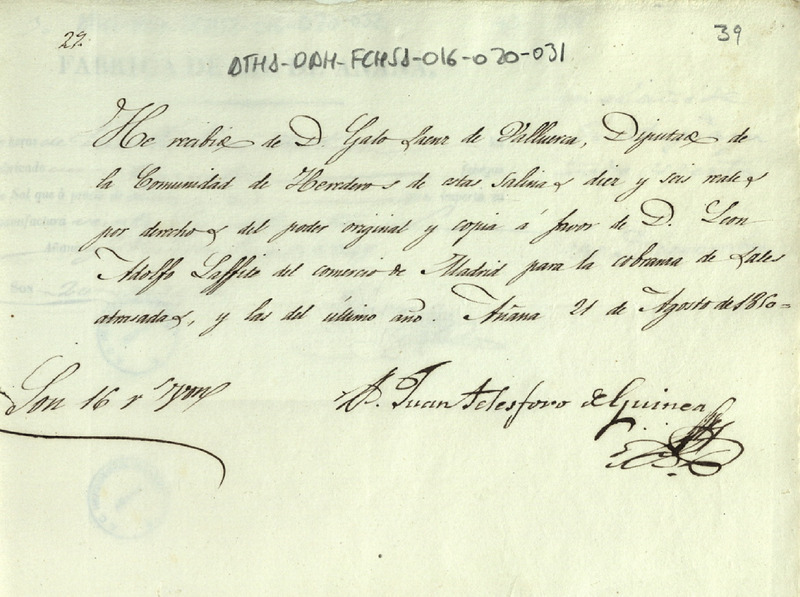 27.
39
DTHA-DAH-FCHSA-016-020-031
He recibido de D. Galo Saenz de Valluerca, Diputado de
la Comunidad de Herederos de estas salinas diez y seis reales
por derechos del poder original y copia á favor de D. Leon
Adolfo Laffite del comercio de Madrid para la cobranza de sales
atrasadas, y las del último año. Añana 21 de Agosto de 1850=
Son 16 r.s von
Juan Telesforo de Guinea